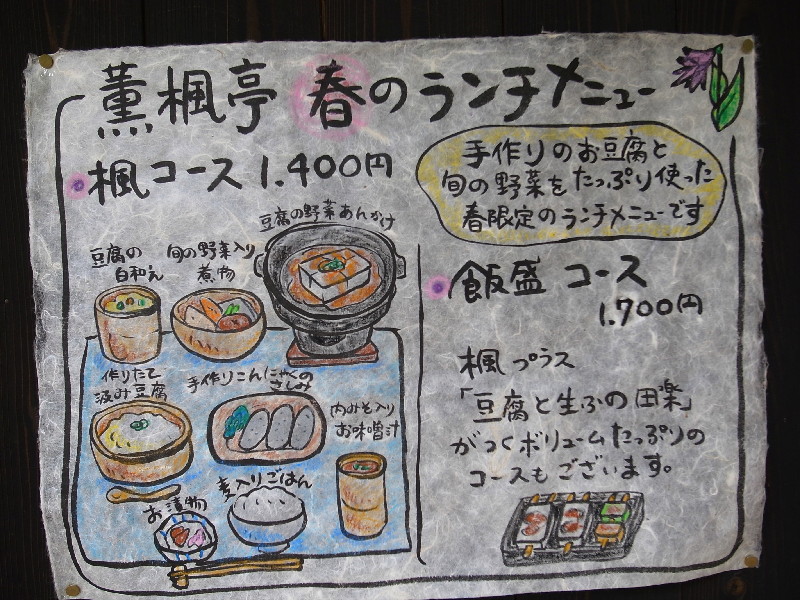 薫楓亭 春のランチメニュー
楓コース 1.400円
手作りのお豆腐と
旬の野菜をたっぷり使った
春限定のランチメニューです
豆腐の野菜あんかけ
豆腐の
白和え
旬の野菜入り
煮物
作りたて
汲み豆腐
手作りこんにゃくの
さしみ
肉みそ入り
お味噌汁
お漬物
麦入りごはん
飯盛 コース
1.700円
楓 プラス
「豆腐と生ふの田楽」
がつくボリュームたっぷりの
コースもございます。